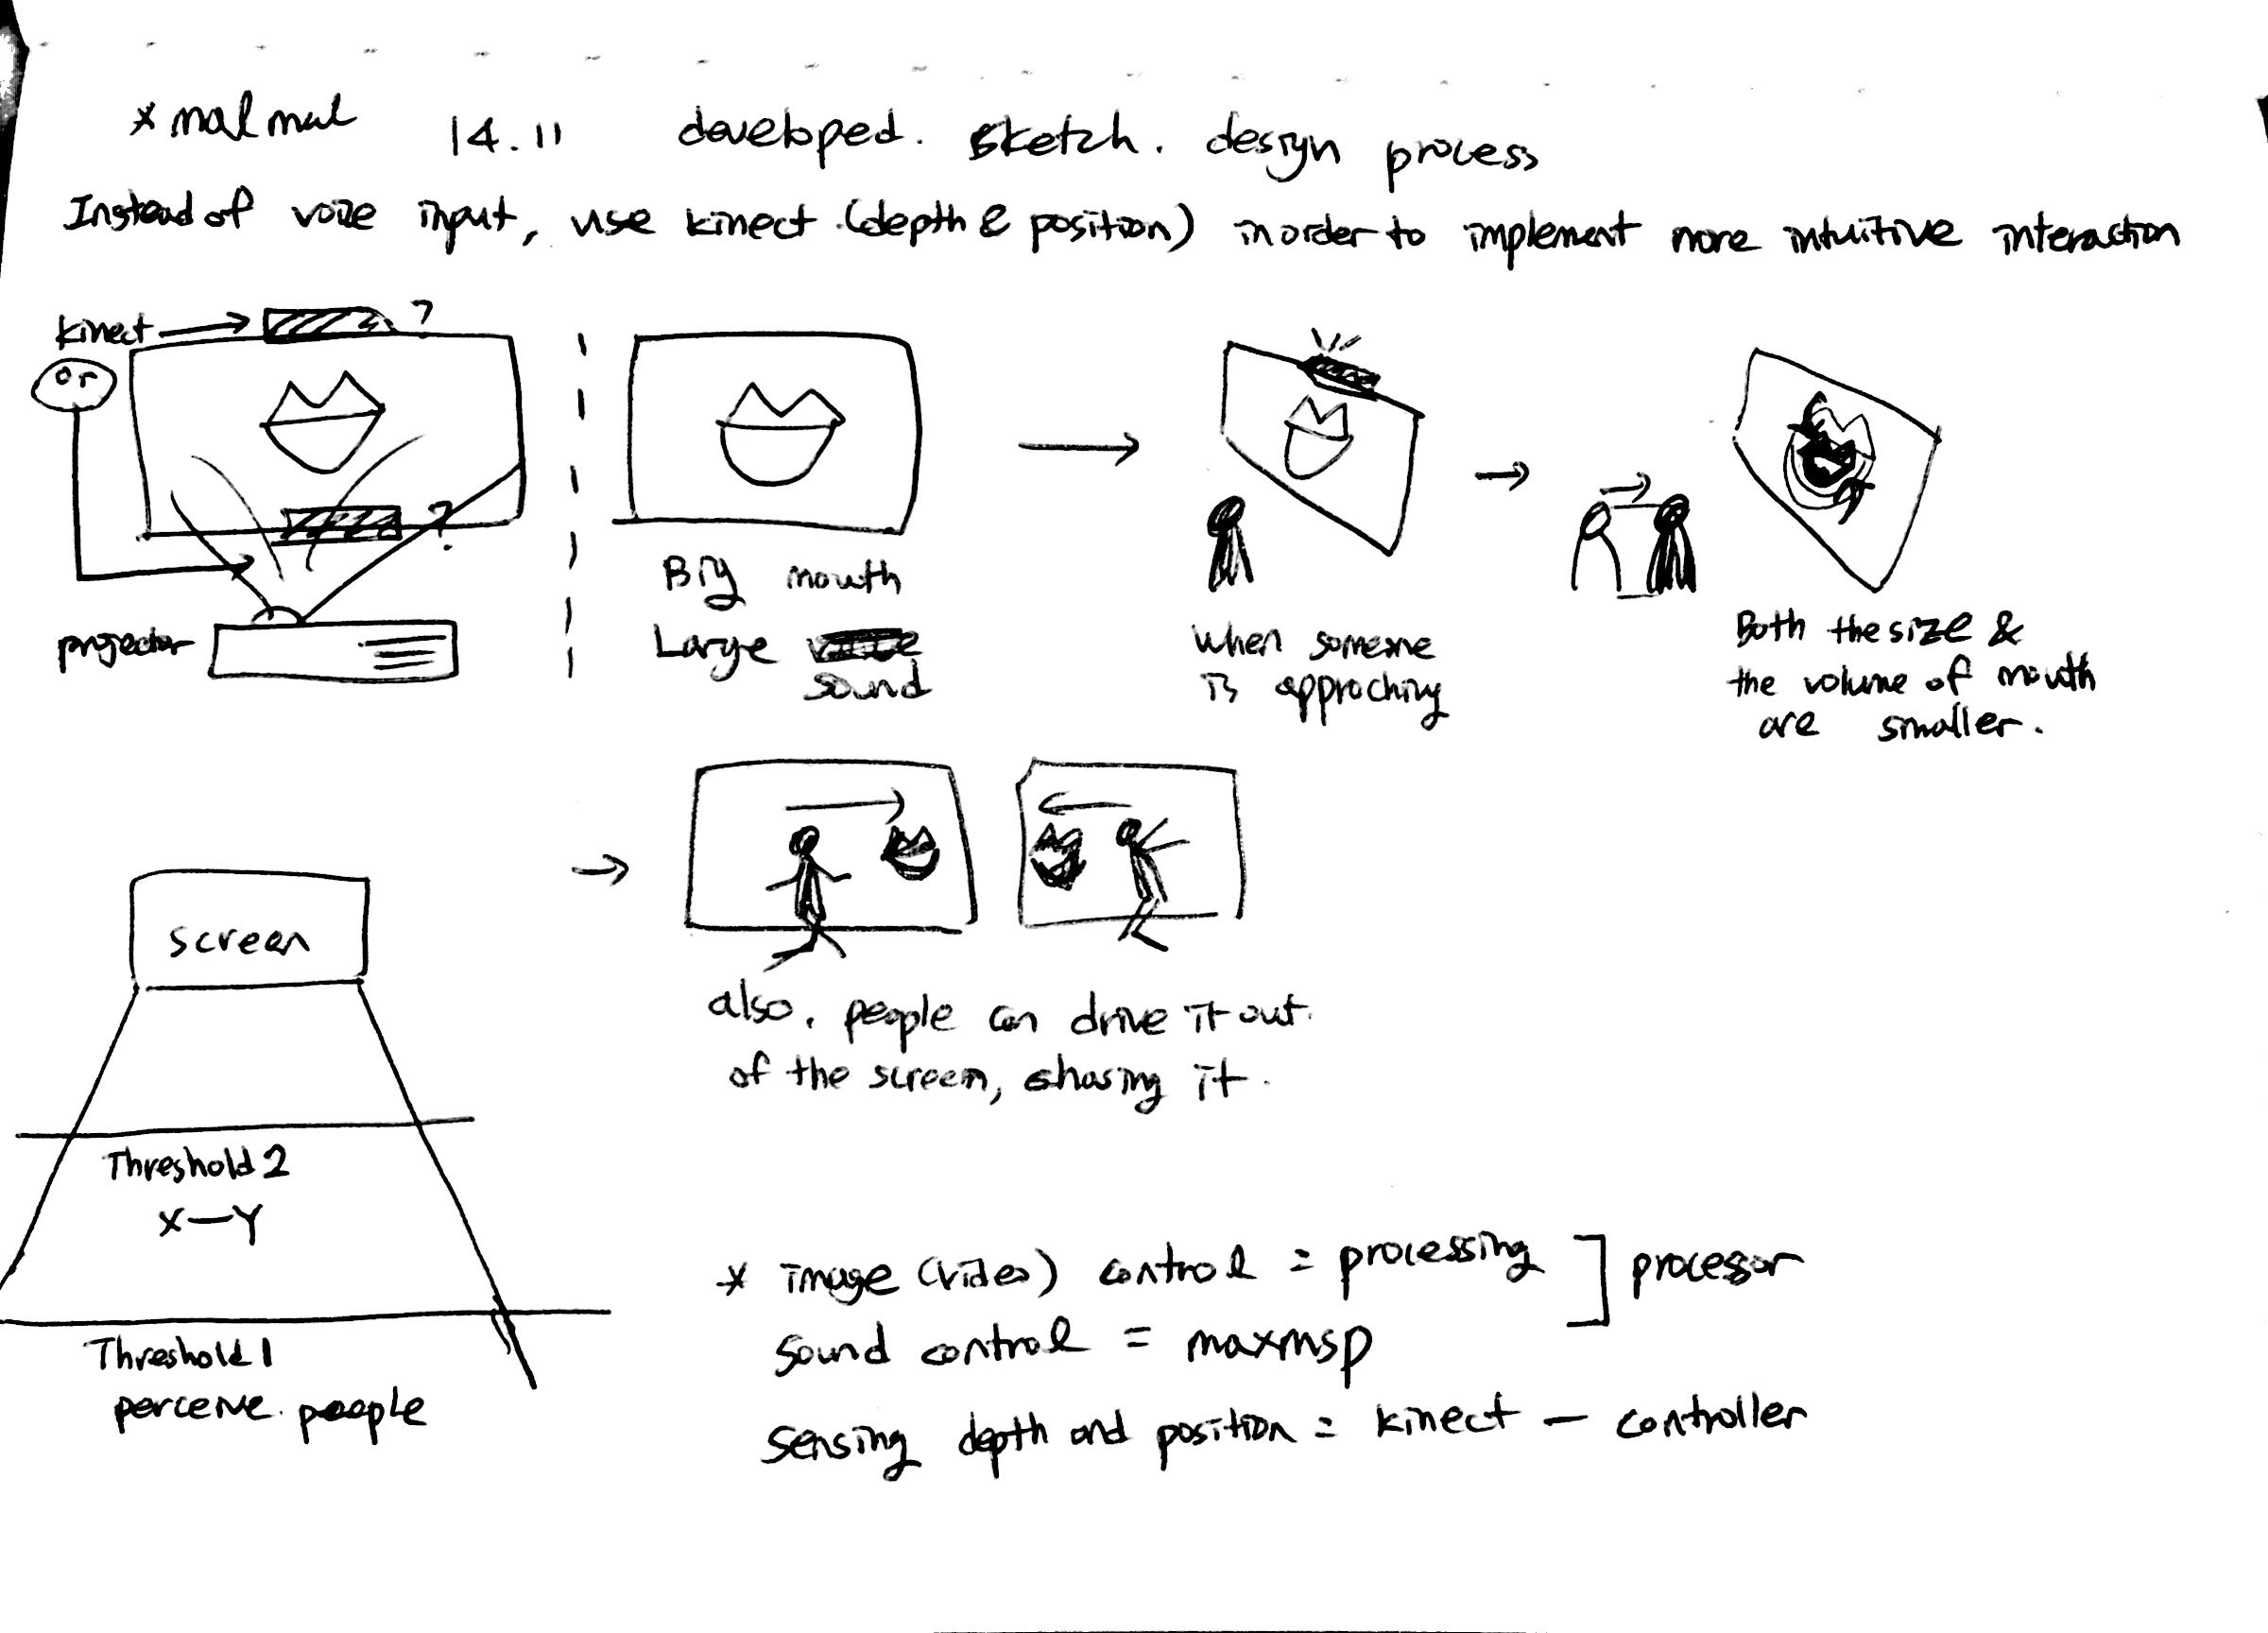 * malmal 14.11 developed. sketch. design process
Instead of voice input, use kinect (depth & position) in order to implement more intuitive interaction
kinect ?
or
?
projector
Big mouth
Large sound
when someone
is approching
Both the size &
the volume of mouth
are smaller.
also, people can drive it out.
of the screen, chasing it.
screen
Threshold 2
X—Y
Threshold 1
perceive people
* image (video) control = processing ] processor
sound control = maxmsp
sensing depth and position = kinect — controller